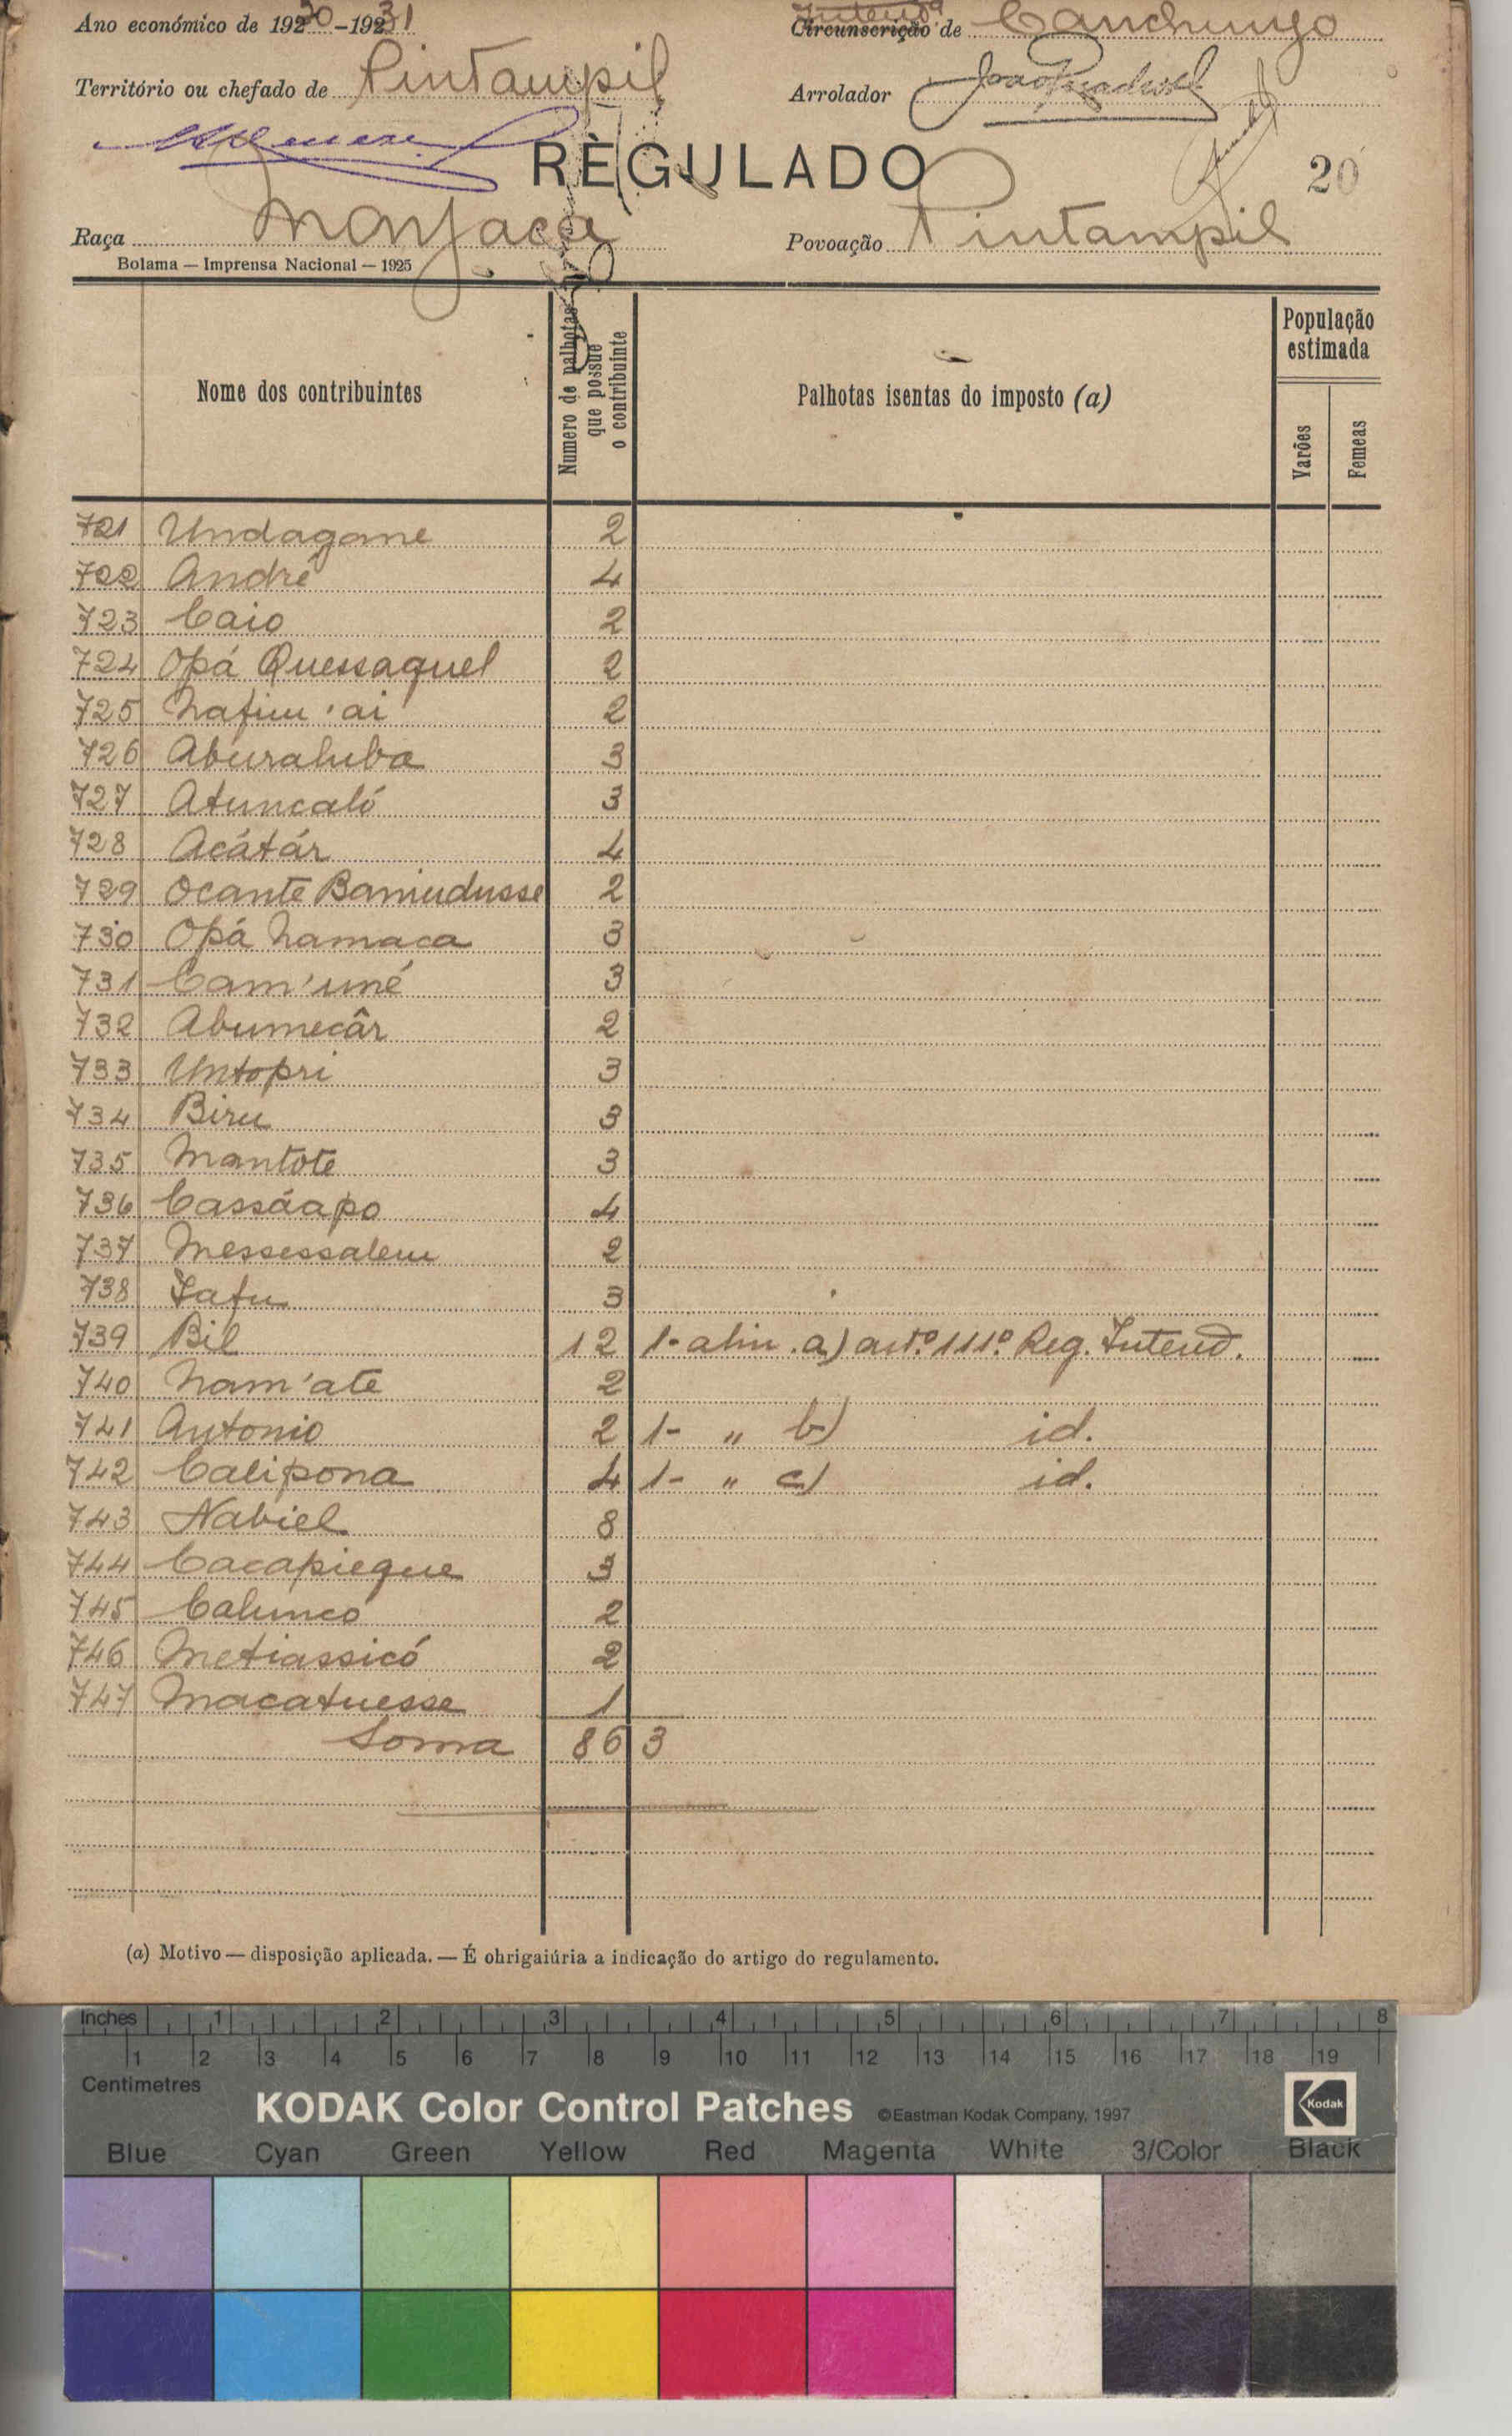 Ano económico de 1930-1931 Intend.ª Circunscrição de Canchungo
Território ou chefado de Pintampil Arrolador
REGULADO 20
Raça Manjaca Povoação Pintampil
Bolama — Imprensa Nacional — 1925
Nome dos contribuintes
Numero de palhotas que possue o contribuinte
Palhotas isentas do imposto (a)
População estimada
Varões Femeas
721 Undagane 2
722 André 4
723 Caio 2
724 Opá Quessaquel 2
725 Nafim'ai 2
726 Aburaluba 3
727 Atuncaló 3
728 Acátár 4
729 Ocante Baniudusse 2
730 Opá Namaca 3
731 Cam'uné 3
732 Abumecâr 2
733 Untopri 3
734 Biru 3
735 Mantote 3
736 Cassáapo 4
737 Messessalem 2
738 Jafu 3
739 Bil 12 1- alin. a) art.º 111º Reg. Intend.
740 Nam'ate 2
741 Antonio 2 1- " b) id.
742 Calipona 4 1- " c) id.
743 Nabiel 8
744 Cacapieque 3
745 Calunco 2
746 Metiassicó 2
747 Macatuesse 1
Soma 86 3
(a) Motivo — disposição aplicada. — É ohrigaiúria a indicação do artigo do regulamento.
Inches 1 2 3 4 5 6 7 8
1 2 3 4 5 6 7 8 9 10 11 12 13 14 15 16 17 18 19
Centimetres
KODAK Color Control Patches ©Eastman Kodak Company, 1997 Kodak
Blue Cyan Green Yellow Red Magenta White 3/Color Black